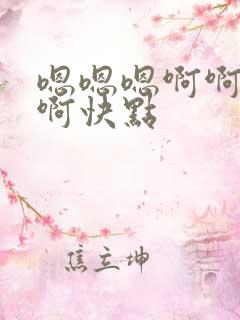 嗯嗯嗯啊啊
啊快點
焦立坤